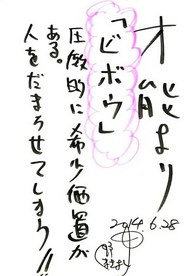 才能より
「ビボウ」
圧倒的に希少価置が
ある。
人をだまらせてしまう!!
2014.6.28